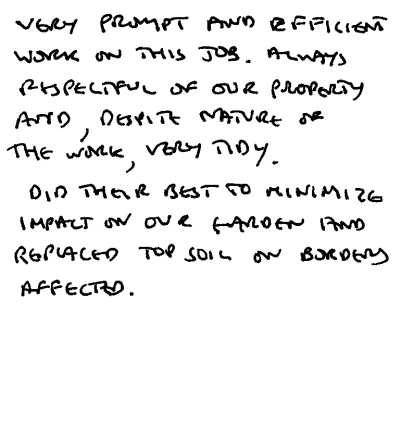 VERY PROMPT AND EFFICIENT
WORK ON THIS JOB. ALWAYS
RESPECTFUL OF OUR PROPERTY
AND, DESPITE NATURE OF
THE WORK, VERY TIDY.
DID THEIR BEST TO MINIMIZE
IMPACT ON OUR GARDEN AND
REPLACED TOP SOIL ON BORDERS
AFFECTED.